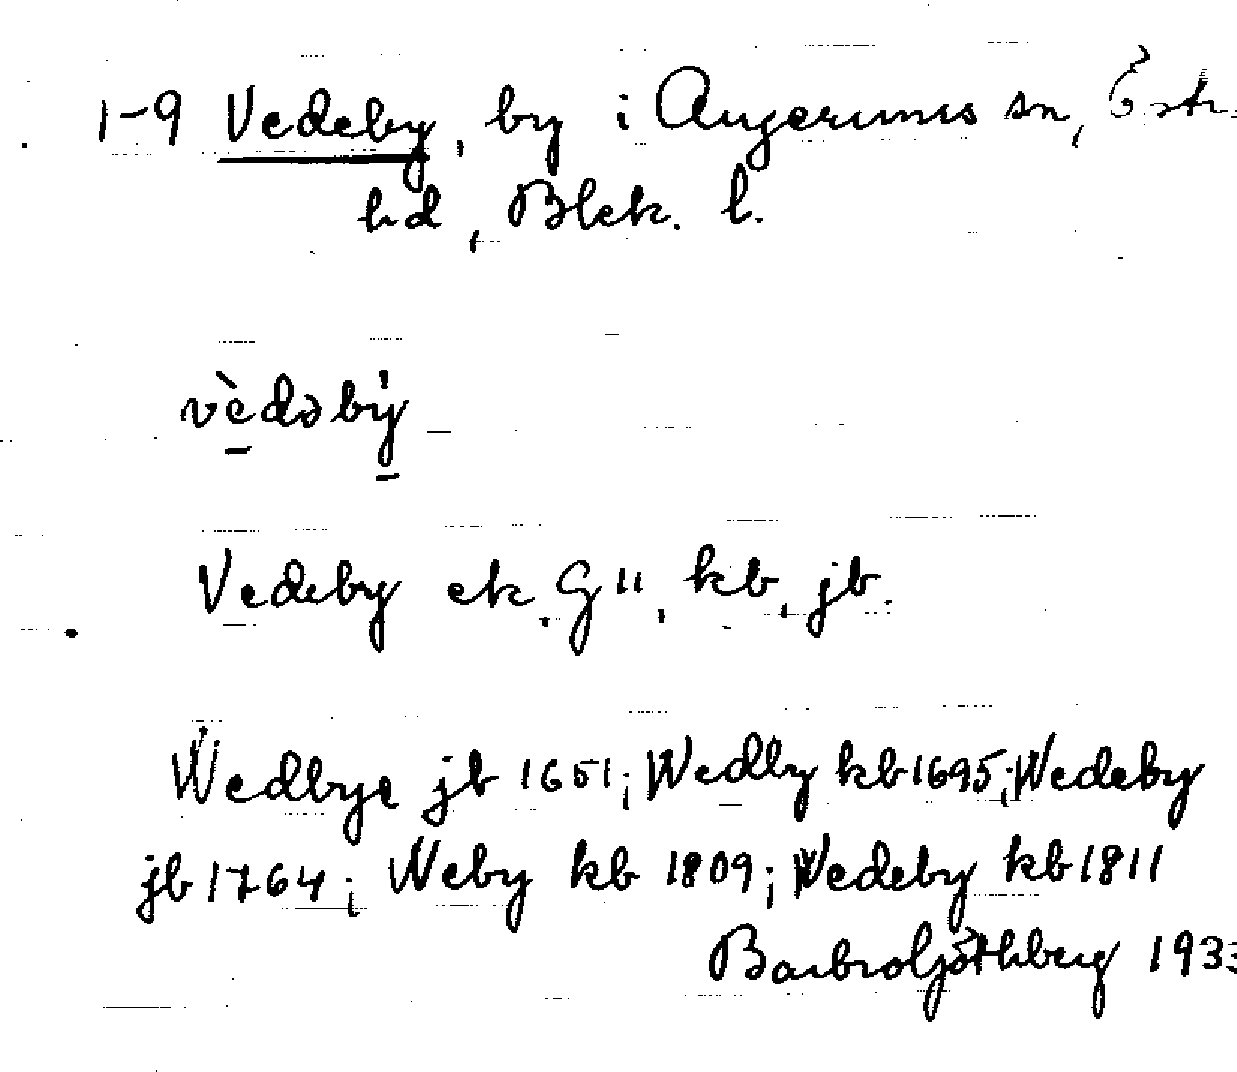 1-9 Vedeby, by i Augerums sn, Östr.
hd, Blek. l.
vèdəbý
Vedeby ek. G", kb, jb.
Wedbye jb 1651; Wedby kb 1695; Wedeby
jb 1764; Weby kb 1809; Wedeby kb 1811
Barbro Göthberg 1933